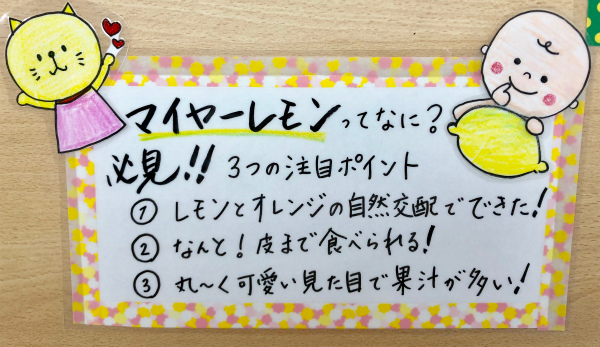 マイヤーレモンってなに?
必見!! 3つの注目ポイント
① レモンとオレンジの自然交配でできた!
② なんと!皮まで食べられる!
③ 丸〜く可愛い見た目で果汁が多い!